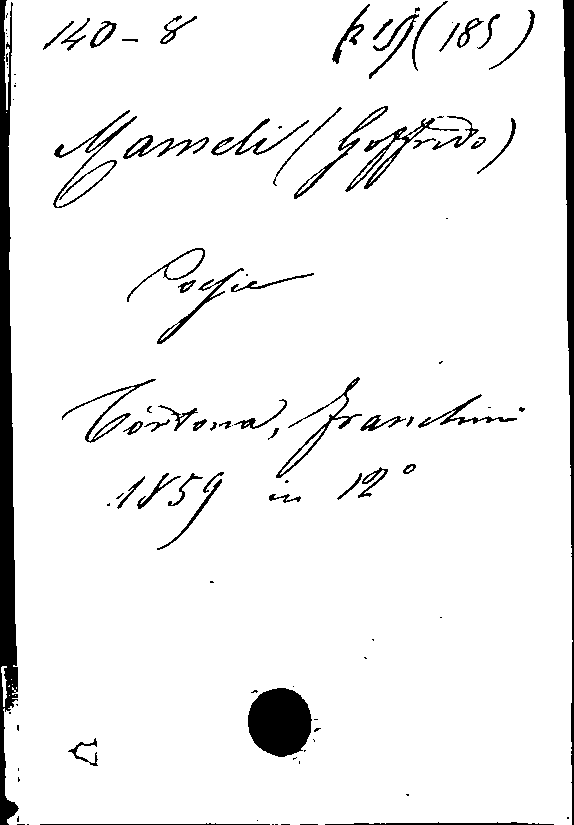 140-8 (185)
Mameli (Goffredo)
Poesie
Tortona, Franchini
1859 in 12°